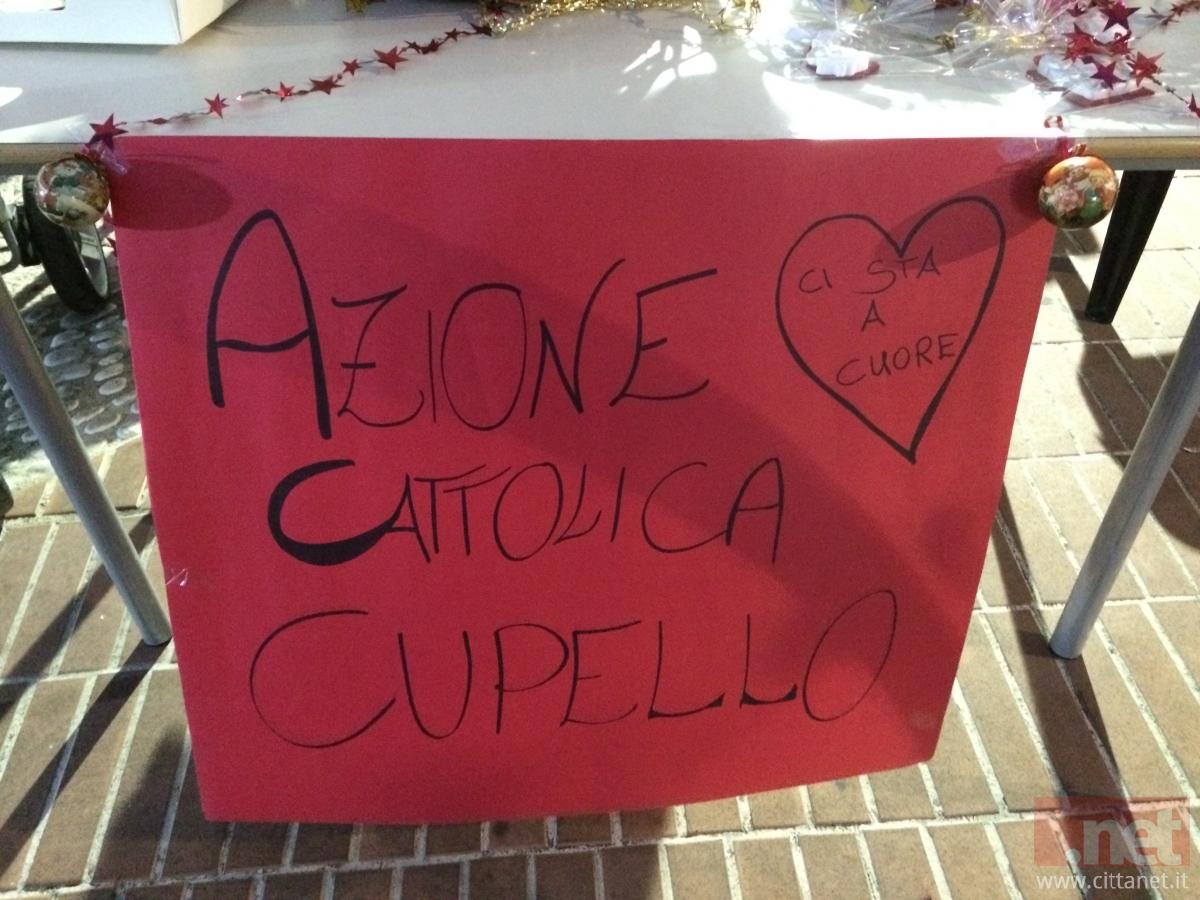 AZIONE
CATTOLICA
CUPELLO
CI STA
A
CUORE
.net
www.cittanet.it